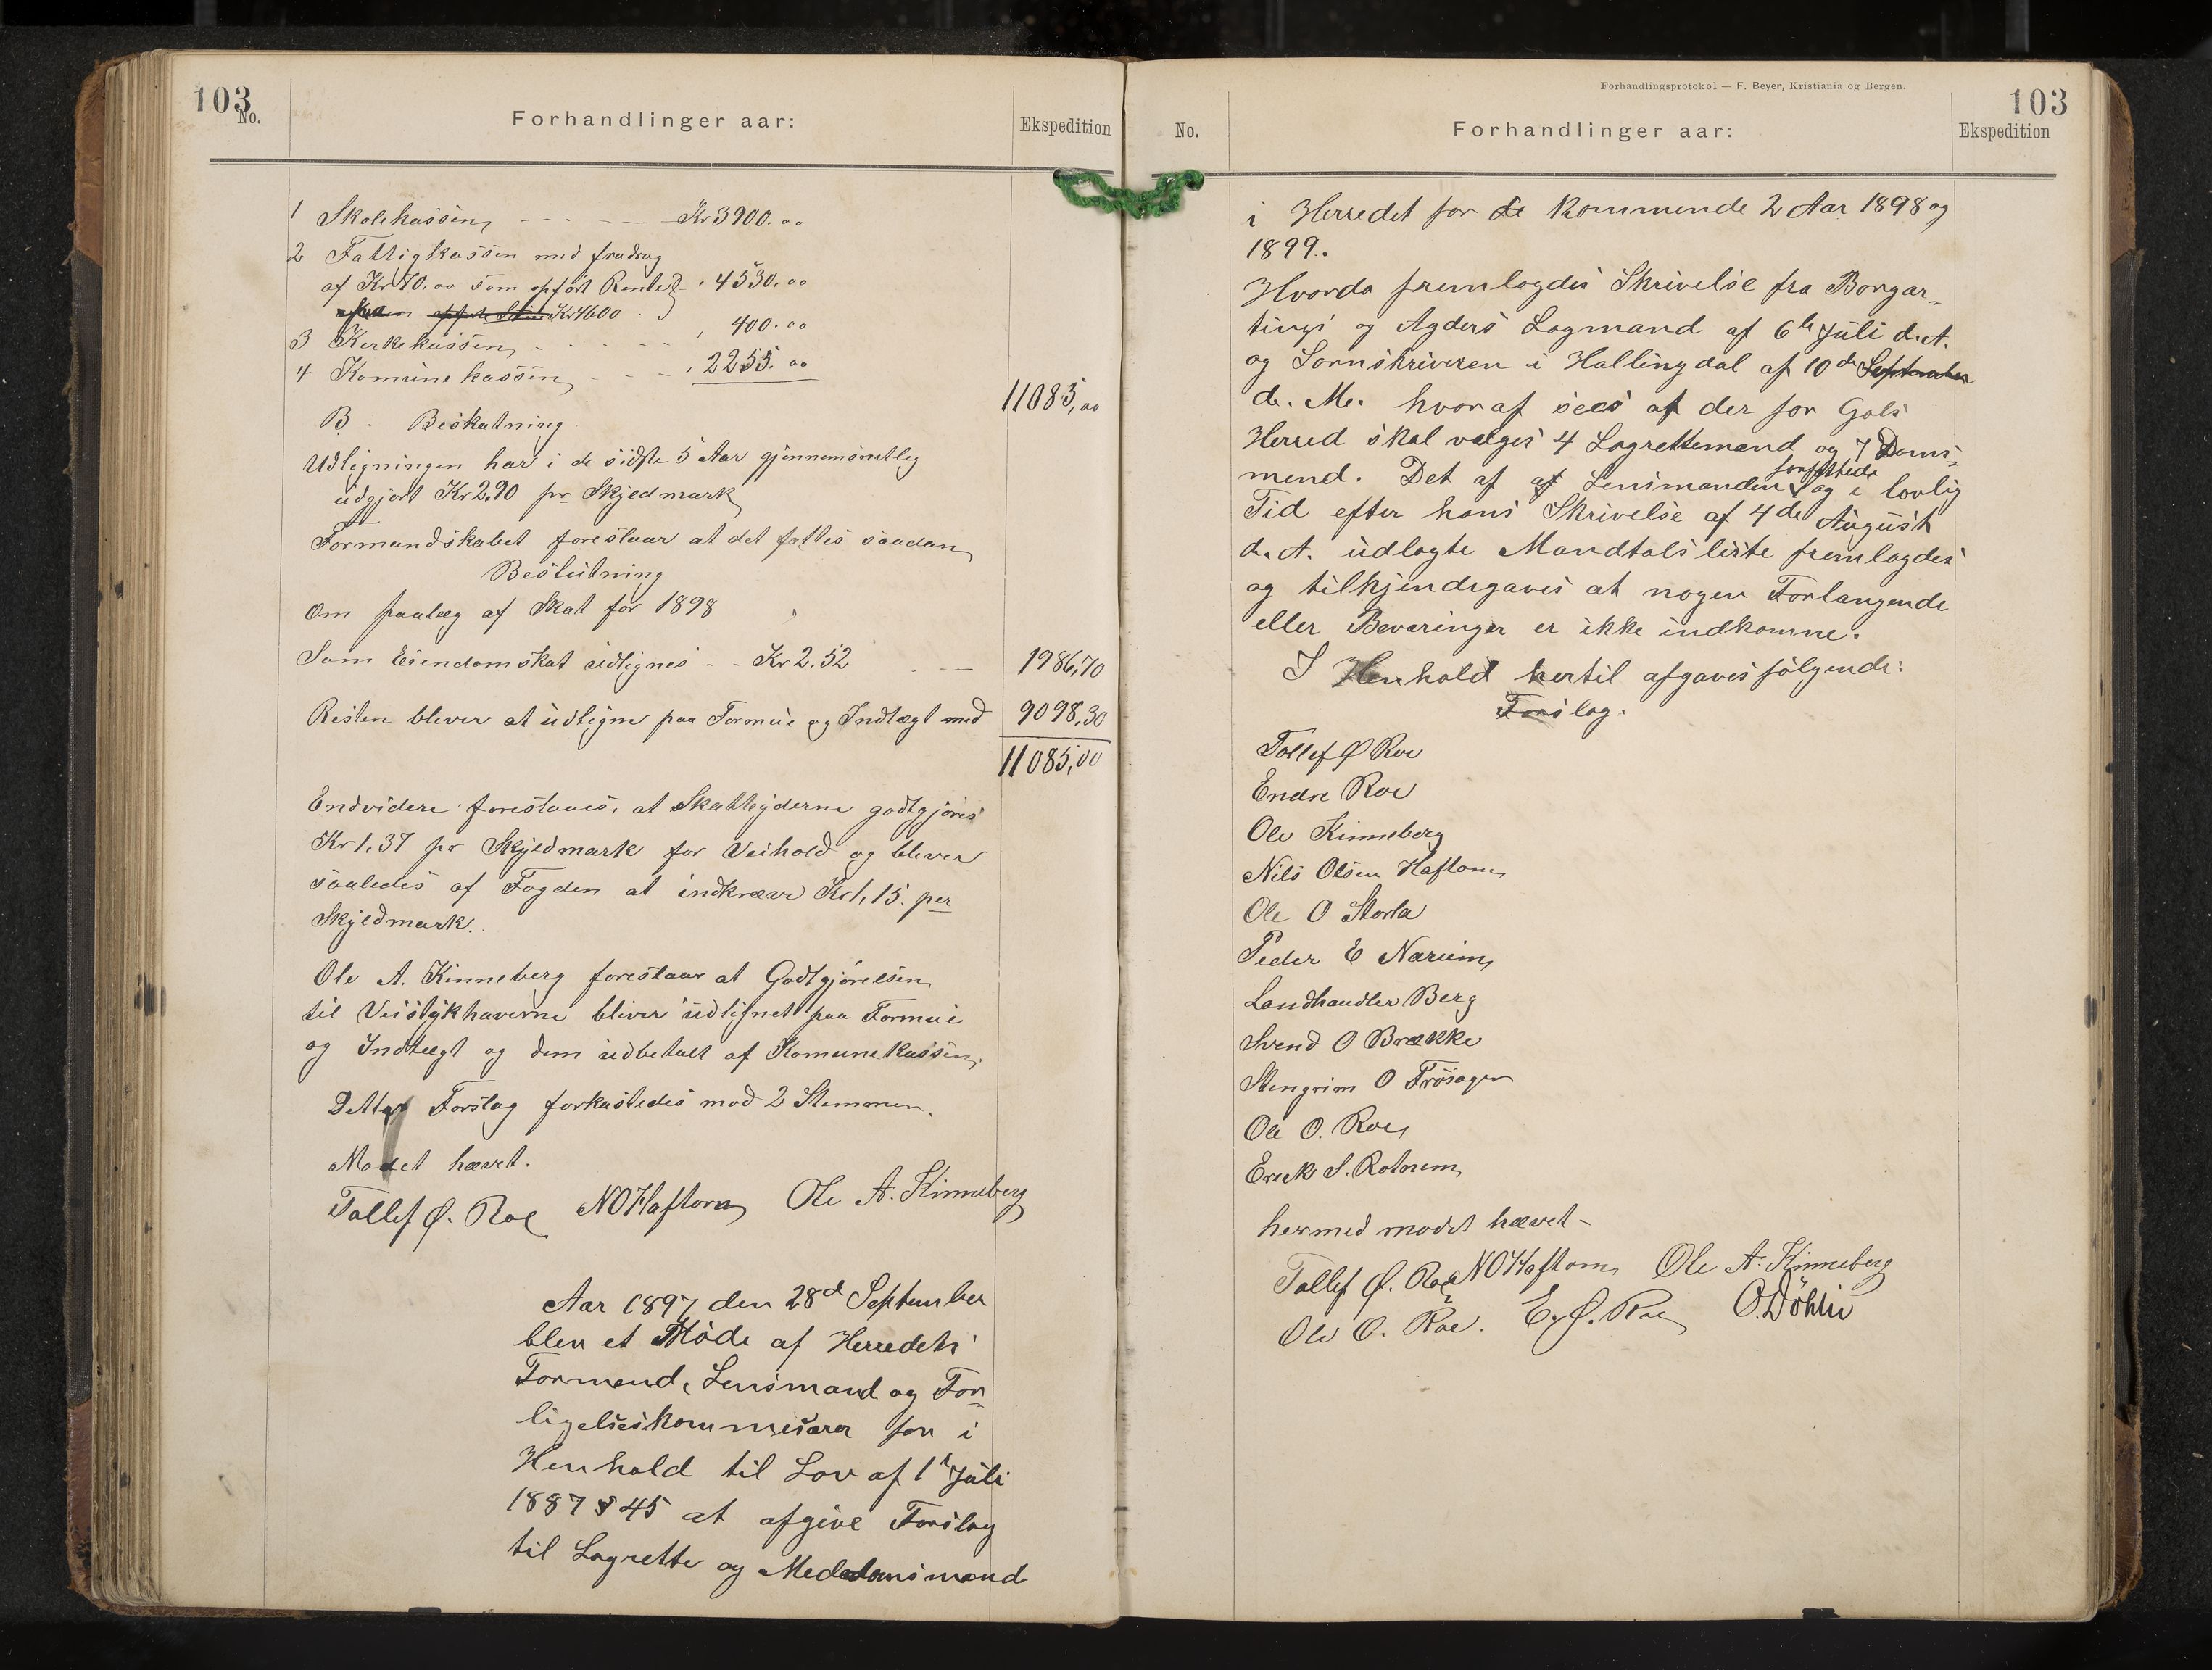 103
No.
Forhandlinger aar:
Ekspedition
1 Skolekassen - - - Kr 3900.00
2 Fattigkassen med fradrag
af Kr 70.00 som opført Renter " 4530.00
Kr 4600
3 Kirkekassen - - - - - " 400.00
4 Komunekassen - - - " 2255.00
11085,00
B. Beskatning
Udligningen har i de sidste 5 Aar gjennemsnitlig
udgjort Kr 2,90 pr Skjedmark
Formandskabet foreslaar at det fattes saadan
Beslutning
Om paalæg af Skat for 1898
Som Eiendomskat udlignes - - Kr 2,52 — 1986,70
Resten bliver at udligne paa Formue og Indtægt med 9098,30
11085,00
Endvidere foreslaaes, at Skatteyderne godtgjøres
Kr 1,37 pr Skyldmark for Veihold og bliver
saaledes af Fogden at indkræve Kr 1,15. per
Skyldmark.
Ole A. Kinneberg foreslaar at Godtgjørelsen
til Veistykhaverne bliver udlignet paa Formue
og Indtægt og dem udbetalt af Komunekassen.
Dette Forslag forkastedes mod 2 Stemmer.
Mødet hævet.
Tollef Ø. Roe NOHaftorn Ole A. Kinneberg
Aar 1897 den 28d September
blev et Møde af Herredets
Formænd, Lensmand og For-
ligelseskommisærer for i
Henhold til Lov af 1ste Juli
1887 § 45 at afgive Forslag
til Lagrette og Meddomsmænd
Forhandlingsprotokol — F. Beyer, Kristiania og Bergen.
103
No.
Forhandlinger aar:
Ekspedition
i Herredet for de kommende 2 Aar 1898 og
1899.
Hvorda fremlagdes Skrivelse fra Borgar-
tings og Agders Lagmand af 6te Juli d.A.
og Sornskriveren i Hallingdal af 10de September
d. M. hvoraf sees at der for Gols
Herred skal vælges 4 Lagrettemænd og 7 Doms-
mænd. Det af af Lensmanden forfattede og i lovlig
Tid efter hans Skrivelse af 4de August
d. A. udlagte Mandtalsliste fremlagdes
og tilkjendegaves at nogen Forlangende
eller Bevaringer er ikke indkomne.
I Henhold hertil afgaves følgende:
Forslag.
Tollef Ø Roe
Endre Roe
Ole Kinneberg
Nils Olsen Haftorn
Ole O Storla
Peder E Narum
Landhandler Berg
Svend O Brække
Stengrim O Frøsager
Ole O. Roe
Erick S. Rotneim
hermed mødet hævet -
Tollef Ø. Roe NOHaftorn Ole A. Kinneberg
Ole O. Roe. E. Ø. Roe O. Döhlie